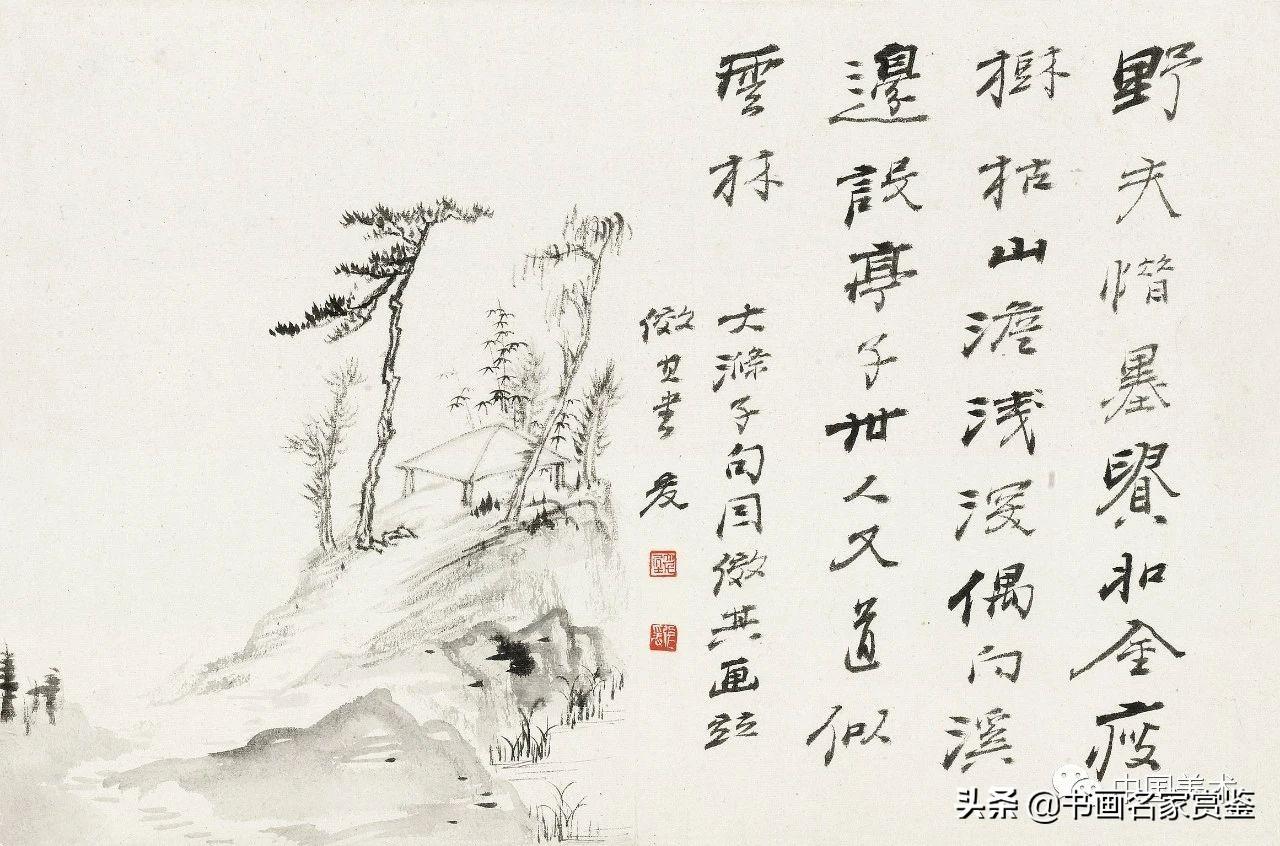 野夫惜墨賢如金瘦
樹枯山澹浅深偶向溪
邊設亭子世人又道似
雲林
大滌子句同倣其画竝
倣其書 爰
中国美术
头条 @书画名家赏鉴